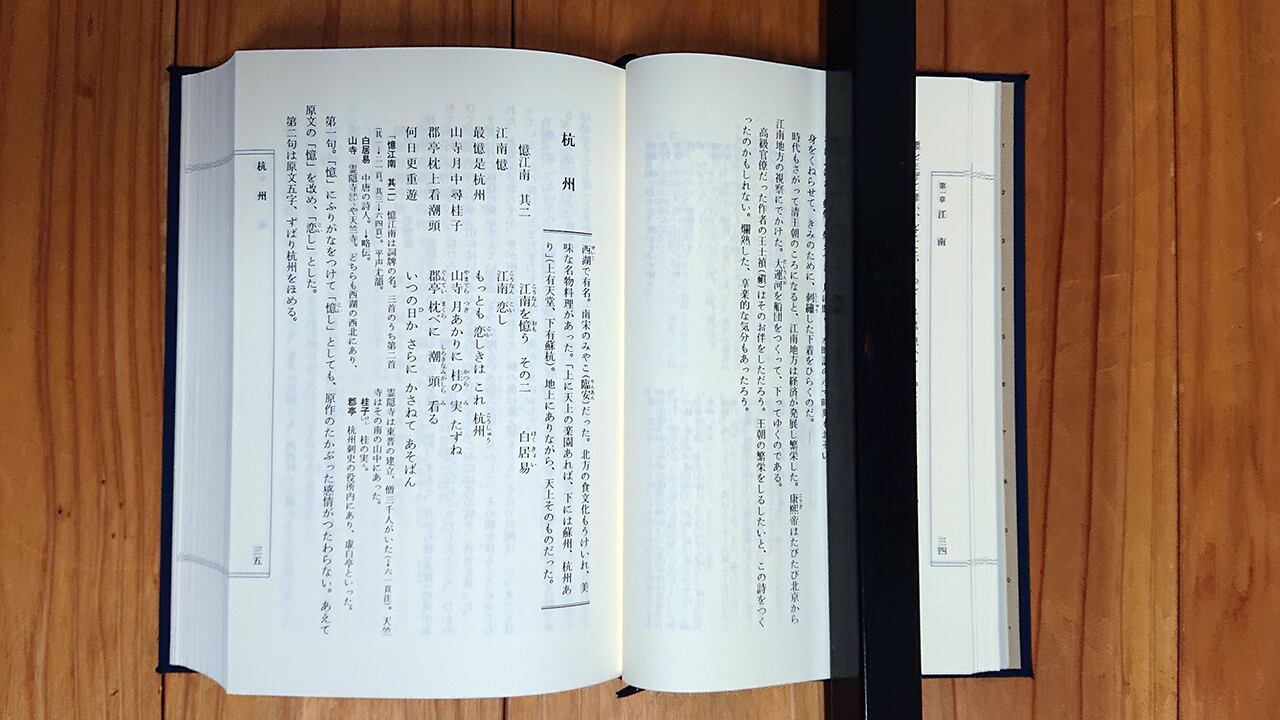 第一章 江南
三四
身をくねらせて、きみのために、刺繡した下着をひらくのだ。
時代もさがって清王朝のころになると、江南地方は経済が発展し繁栄した。康熙帝はたびたび北京から
江南地方の視察にでかけた。大運河を船団をつくって、下ってゆくのである。
高級官僚だった作者の王士禛(禎)はそのお伴をしただろう。王朝の繁栄をしるしたいと、この詩をつく
ったのかもしれない。爛熟した、享楽的な気分もあったろう。
杭州
西湖で有名。南宋のみやこ(臨安)だった。北方の食文化もうけいれ、美
味な名物料理があった。「上に天上の楽園あれば、下には蘇州、杭州あ
り」(上有天堂、下有蘇杭)。地上にありながら、天上そのものだった。
憶江南 其二
江南を憶う その二 白居易
江南憶
江南 恋し
最憶是杭州
もっとも 恋しきは これ 杭州
山寺月中尋桂子
山寺 月あかりに 桂の 実 たずね
郡亭枕上看潮頭
郡亭 枕べに 潮頭 看る
何日更重遊
いつの日か さらに かさねて あそばん
「憶江南 其二」 憶江南は詞牌の名。三首のうち第二首
白居易 中唐の詩人。→略伝。
山寺 霊隠寺や天竺寺。どちらも西湖の西北にあり、
霊隠寺は東晋の建立、僧三千人がいた(→六一頁注)。天竺
寺はその南の山中にあった。
桂子 桂の実。
郡亭 杭州刺史の役所内にあり、虚白亭といった。
第一句。「憶」にふりがなをつけて「憶し」としても、原作のたかぶった感情がつたわらない。あえて
原文の「憶」を改め、「恋し」とした。
第二句は原文五字、ずばり杭州をほめる。
杭州
三五